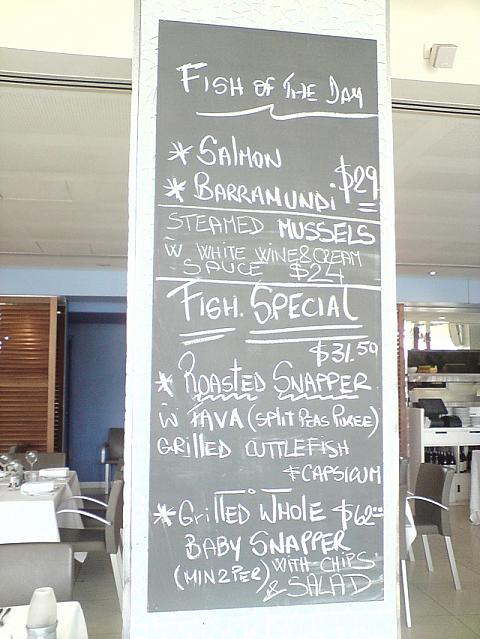 FISH OF THE DAY
* SALMON
$29
* BARRAMUNDi
STEAMED MUSSELS
W WHITE WINE & CREAM
SAUCE $24
FISH. SPECIAL
$31.50
* ROASTED SNAPPER
W FAVA (SPLIT PEAS PUREE)
GRILLED CUTTLEFISH
& CAPSICUM
* GrillED WHOLE $62.00
BABY SNAPPER
(MIN 2 PER) WITH CHIPS
& SALAD